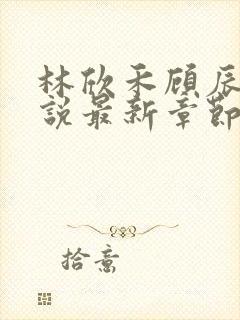 林欣禾顾辰
说最新章节
拾意